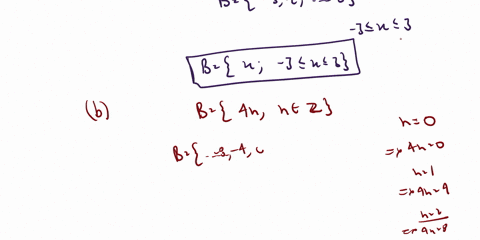 -3≤x≤3
B={ x; -3≤x≤3}
(b) B={ 4n, n∈Z}
B={ ...-8,-4, 
n=0
=> 4n=0
n=1
=> 4n=4
n=2
=> 4n=8